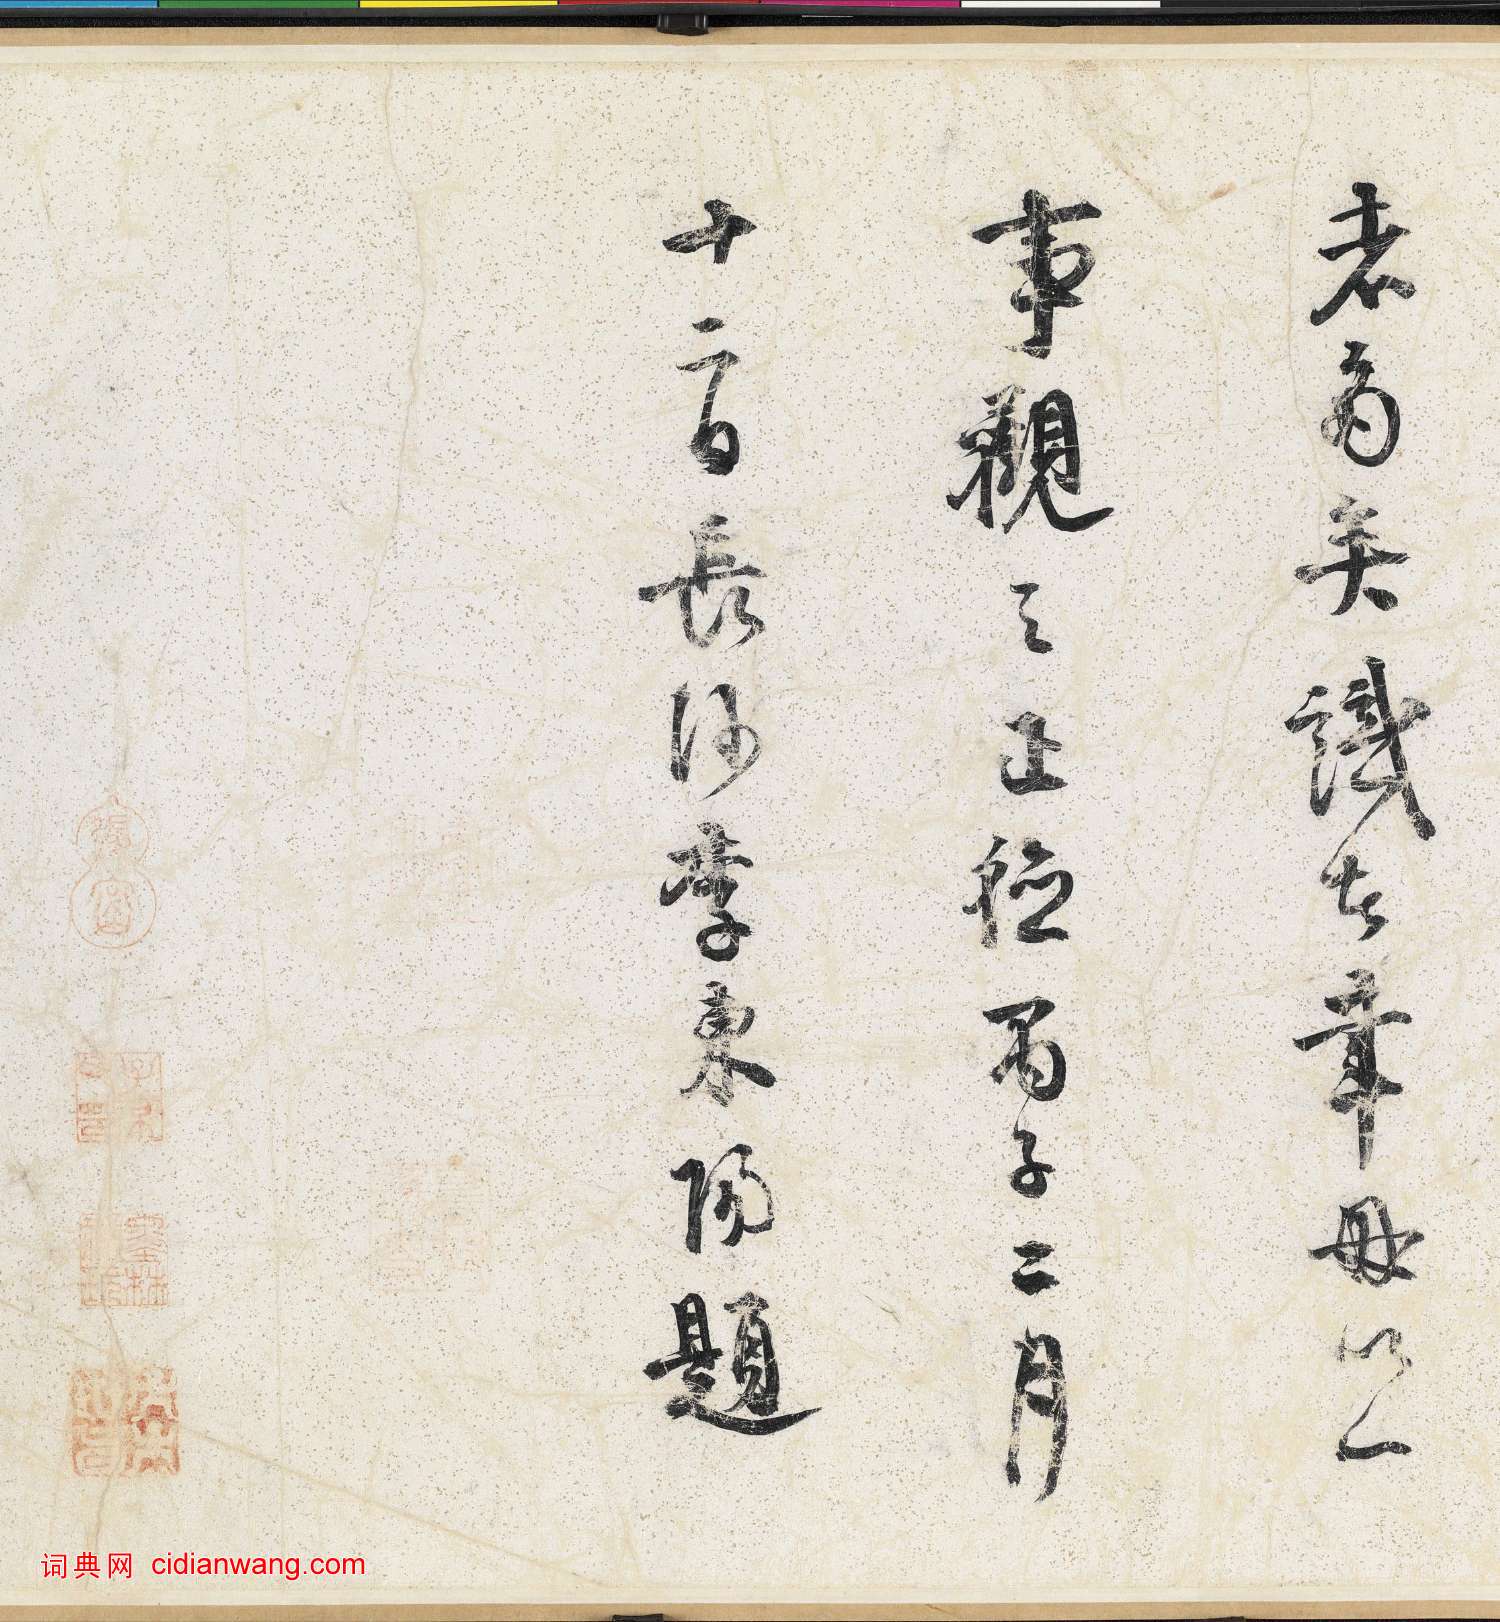 者為矣識者幸毋以一
事觀之正德丙子二月
十二日長沙李東陽題
词典网 cidianwang.com